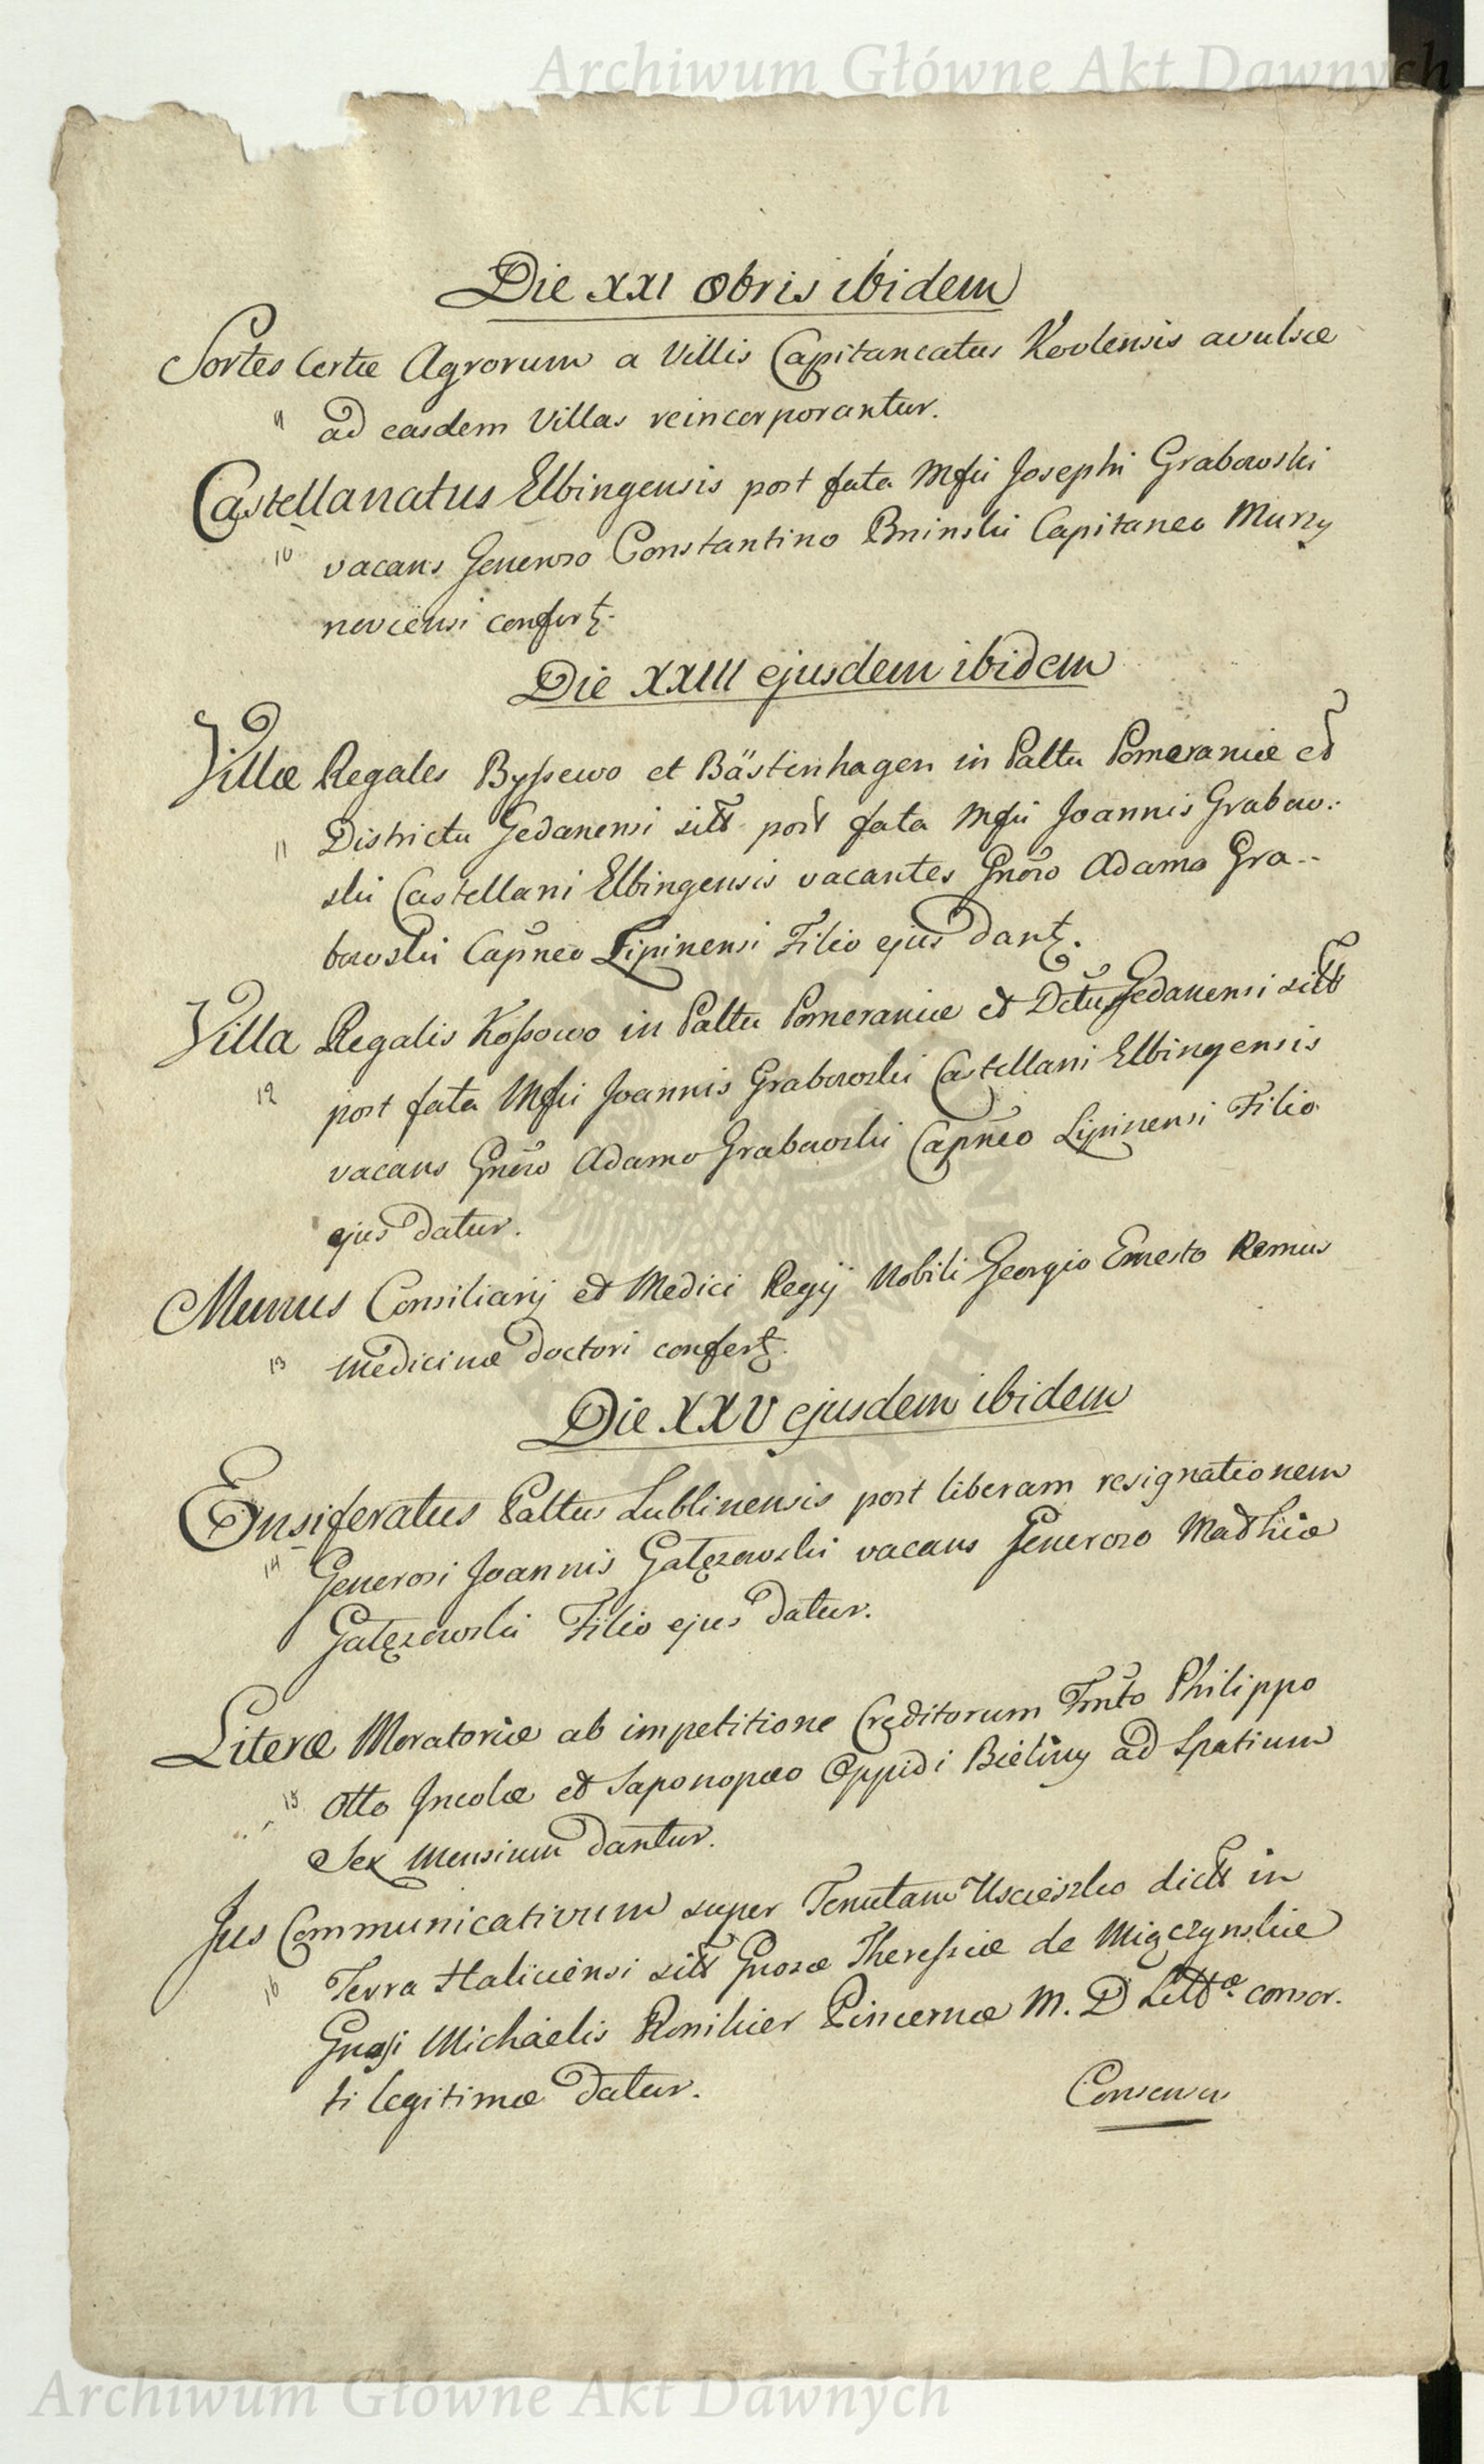 Archiwum Główne Akt Dawnych
Die XXI 8bris ibidem
Sortes certæ Agrorum a Villis Capitaneatus Kovlensis avulsæ
9 ad easdem Villas reincorporantur.
Castellanatus Elbingensis post fata Mfci Josephi Grabowski
10 vacans Generoso Constantino Bninski Capitaneo Murzy
noviensi confert.
Die XXIII ejusdem ibidem
Villæ Regales Byssewo et Bästenhagen in Pałtu Pomeraniæ et
11 Districtu Gedanensi sitt post fata Mfci Joannis Grabow-
ski Castellani Elbingensis vacantes Gnoso Adamo Gra-
bowski Capneo Lipinensi Filio ejus dant.
Villa Regalis Kossowo in Paltu Pomeraniæ et Dctu Gedanensi sitt
12 post fata Mfci Joannis Grabowski Castellani Elbingensis
vacans Gnoso Adamo Grabowski Capneo Lipinensi Filio
ejus datur.
Munus Consiliarij et Medici Regij Nobili Georgio Ernesto Remus
13 Medicinæ doctori confert.
Die XXV ejusdem ibidem
Ensiferatus Paltus Lublinensis post liberam resignationem
14 Generosi Joannis Gałęzowski vacans Generoso Mathiæ
Gałęzowski Filio ejus datur.
Literæ Moratoriæ ab impetitione Creditorum Fmto Philippo
15 Otto Incolæ et Saponopæo Oppidi Bieliny ad Spatium
Sex Mensium dantur.
Jus Communicativum super Tenutam Uscieszko dictt in
16 Terra Haliciensi sitt Gnosæ Theressiæ de Miączynskie
Gnosi Michaelis Ronikier Pincernæ M. D Littæ consor.
ti legitimæ datur.
Consensu
Archiwum Główne Akt Dawnych